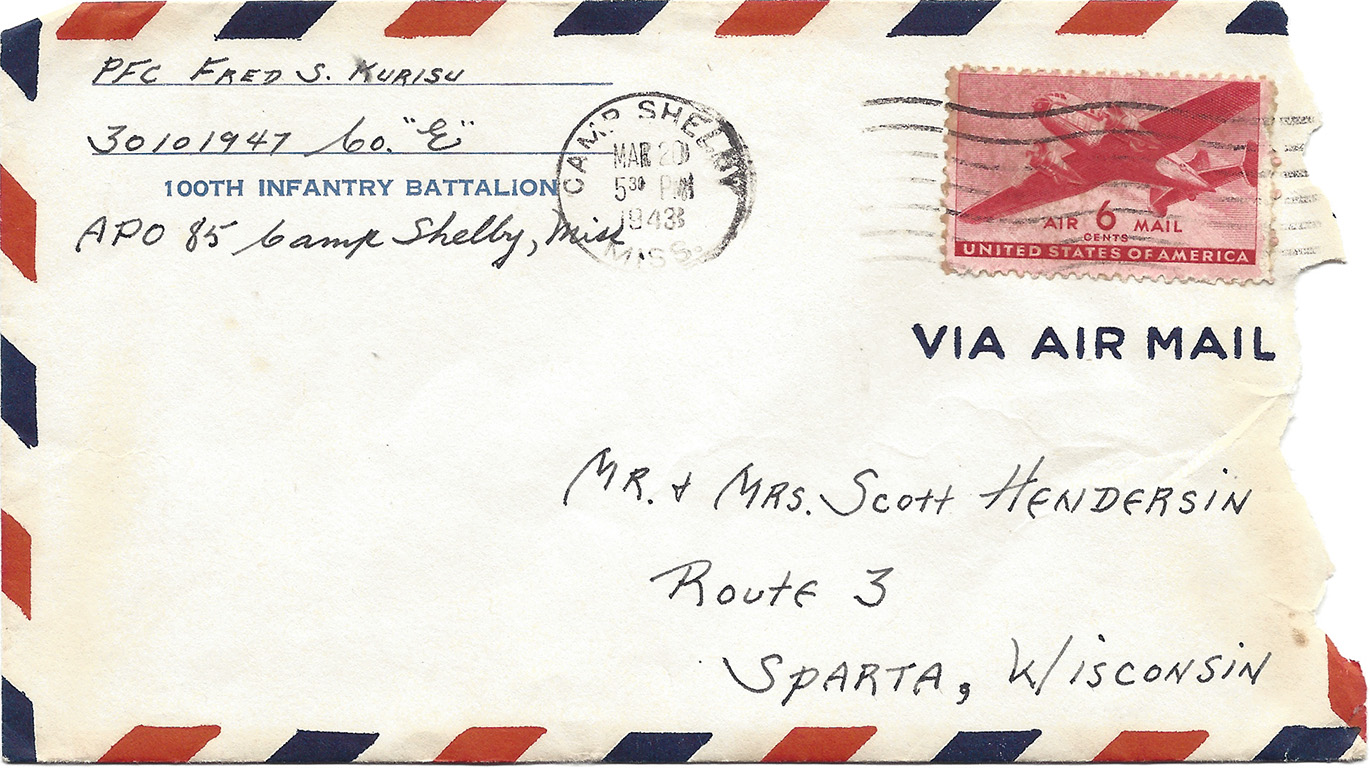 PFC FRED S. KURISU
30101947 Co. "E"
100TH INFANTRY BATTALION
APO 85 Camp Shelby, Miss
CAMP SHELBY
MAR 20
5 30 PM
1943
MISS.
AIR 6 MAIL
CENTS
UNITED STATES OF AMERICA
VIA AIR MAIL
MR. & MRS. SCOTT HENDERSIN
ROUTE 3
SPARTA, WISCONSIN